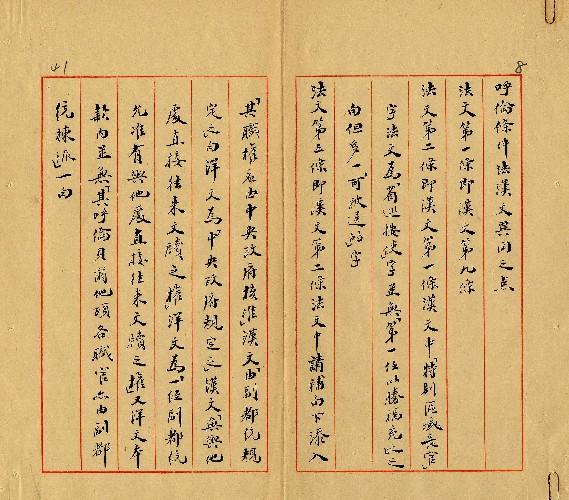 8
呼倫條件法漢文異同之点
法文第一條即漢文第九條
法文第二條即漢文第一條漢文中「特別區域長官」
字法文為「省」巡按使字並無「第一位以勝福充之」之
句但多一「可」被选」的字
法文第三條即漢文第二條法文中請補句下添入
41
「其職權应由中央政府核准」漢文「由」副都統規
定之句洋文為「中央政府規定之」漢文「無與他
處直接往来文牘之權」洋文為「一位副都統
允准有與他處直接往来文牘之權」又洋文本
款内並無「其呼倫貝爾他項各職官亦由副都
統揀派」一句